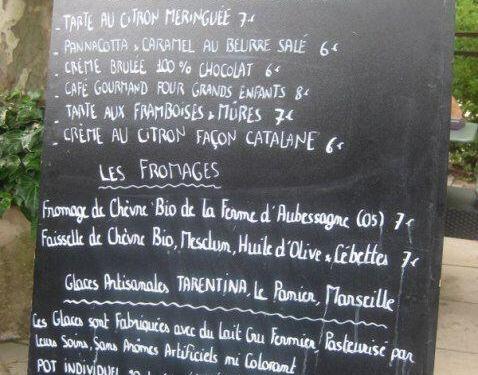 - TARTE AU CITRON MERINGUÉE 7€
- PANNACOTTA & CARAMEL AU BEURRE SALÉ 6€
- CRÈME BRULEE 100% CHOCOLAT 6€
- CAFÉ GOURMAND POUR GRANDS ENFANTS 8€
- TARTE AUX FRAMBOISES & MÛRES 7€
- CRÈME AU CITRON FAÇON CATALANE 6€
LES FROMAGES
Fromage de Chèvre Bio de la Ferme d'Aubessagne (05) 7€
Faisselle de Chèvre Bio, Mesclun, Huile d'Olive & Cébettes 7€
Glaces Artisanales TARENTINA, Le Panier, Marseille
Ces Glaces sont Fabriquées avec du Lait Cru Fermier, Pasteurisé par
Leurs Soins, Sans Arômes Artificiels ni Colorant
POT INDIVIDUEL